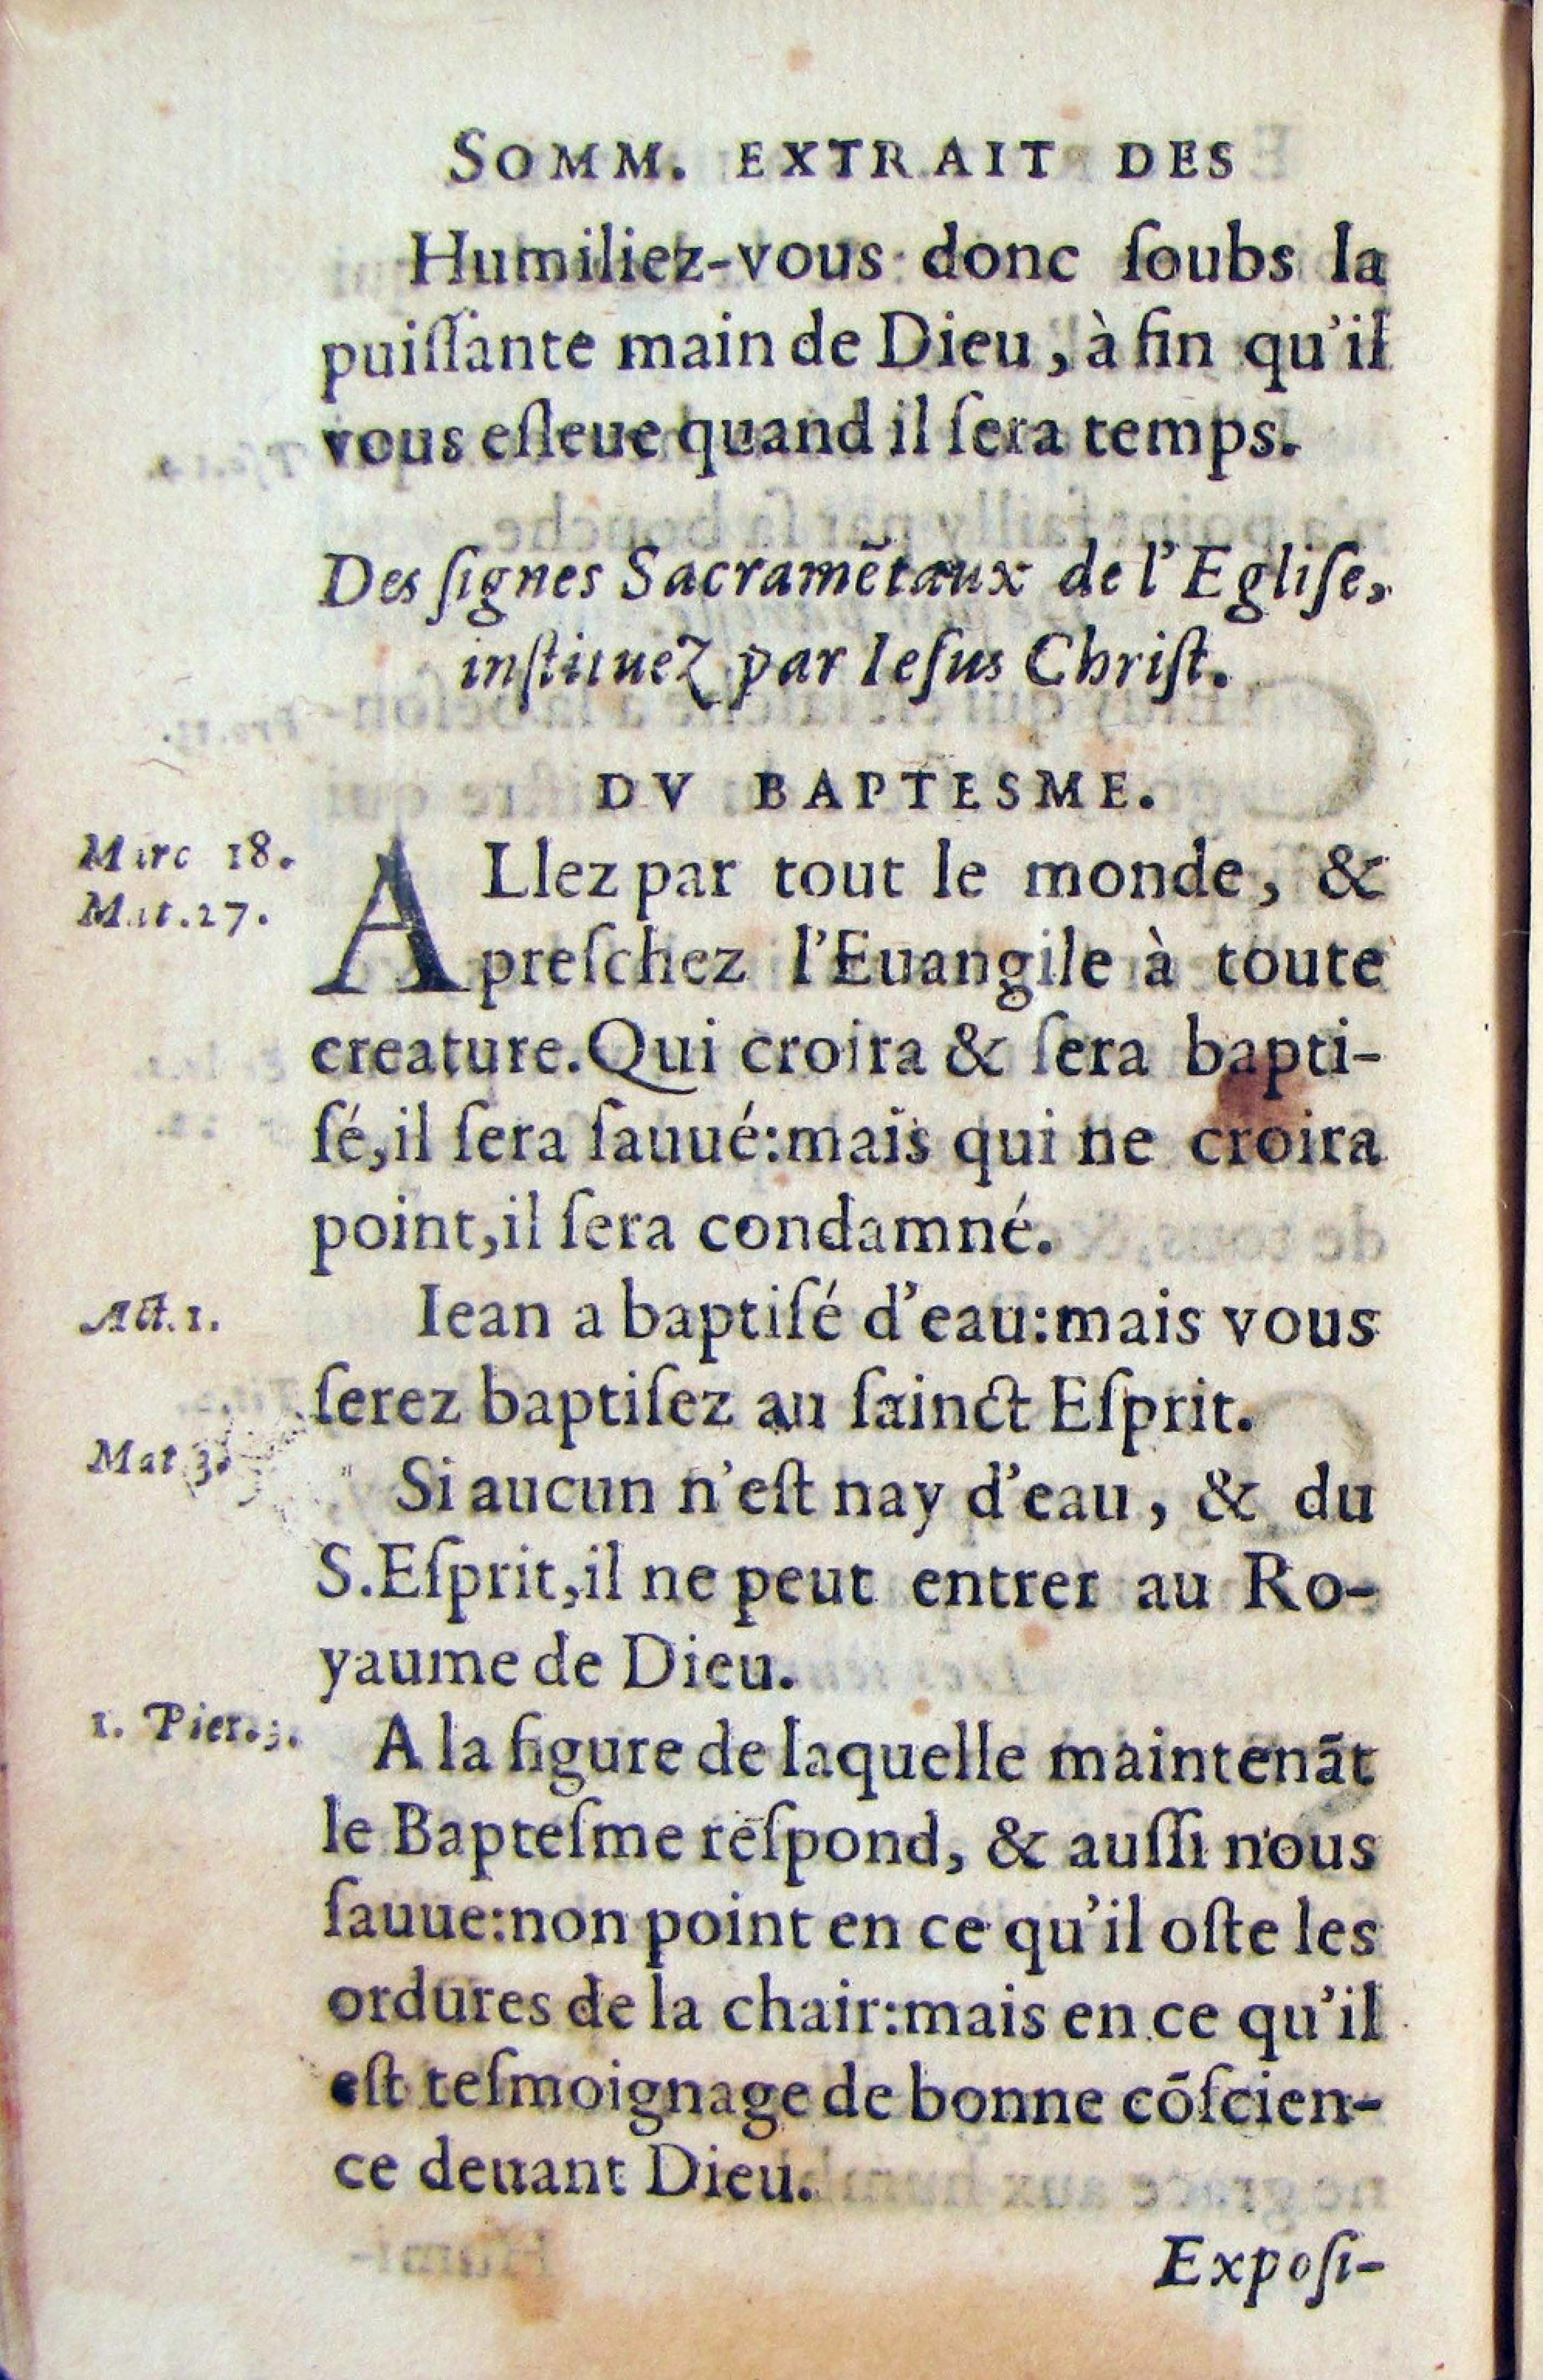 SOMM. EXTRAIT DES
Humiliez-vous donc ſoubs la
puiſſante main de Dieu, à fin qu'il
vous eſleue quand il ſera temps.
Des ſignes Sacramẽtaux de l'Egliſe,
inſtituez par Ieſus Chriſt.
DV BAPTESME.
Marc 18.
Mat.27.
ALlez par tout le monde, &
preſchez l'Euangile à toute
creature. Qui croira & ſera bapti-
ſé, il ſera ſauué: mais qui ne croira
point, il ſera condamné.
Act.1.
Iean a baptiſé d'eau: mais vous
ſerez baptiſez au ſainct Eſprit.
Mat 3.
Si aucun n'eſt nay d'eau, & du
S. Eſprit, il ne peut entrer au Ro-
yaume de Dieu.
1. Pier.3.
A la figure de laquelle maintenãt
le Bapteſme reſpond, & auſſi nous
ſauue: non point en ce qu'il oſte les
ordures de la chair: mais en ce qu'il
eſt teſmoignage de bonne cõſcien-
ce deuant Dieu.
Expoſi-